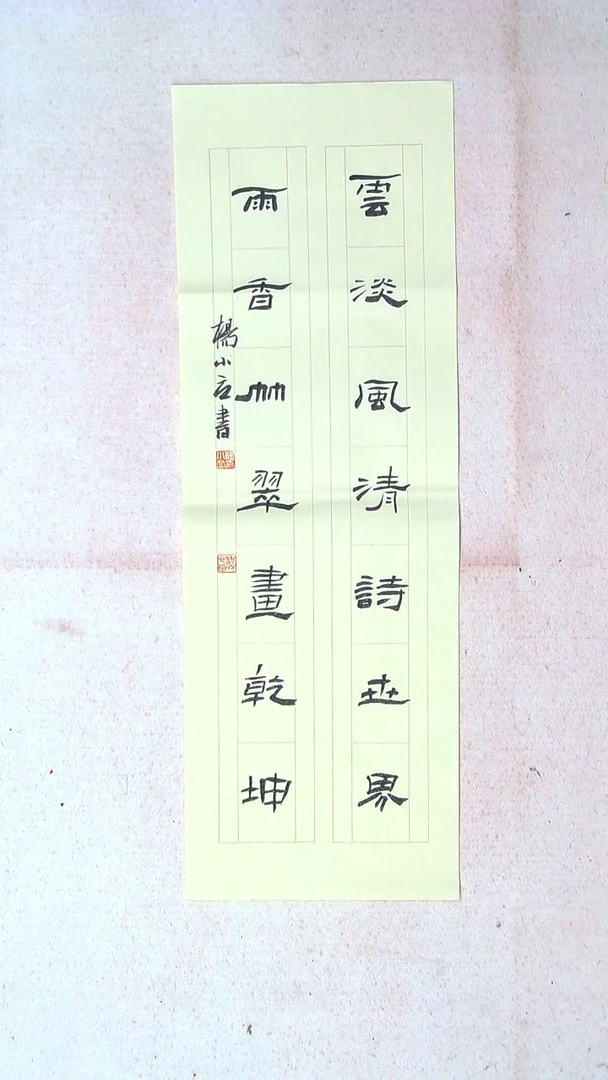 雲淡風清詩世界
雨香竹翠畫乾坤
楊小石書